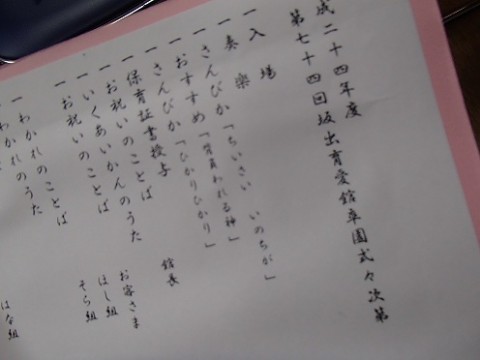 成二十四年度
第七十四回坂出育愛館卒園式々次第
一 入場
一 奏楽
一 さんびか「ちいさい いのちが」
一 おすすめ「背負われる神」
一 さんびか「ひかりひかり」
一 保育証書授与 館長
一 お祝いのことば お客さま
一 いくあいかんのうた ほし組
一 お祝いのことば そら組
一 わかれのことば
一 わかれのうた はな組